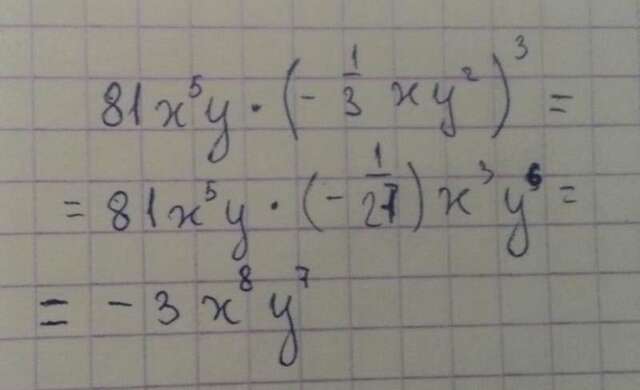 81x⁵y · (- 1/3 xy²)³ =
= 81x⁵y · (- 1/27) x³y⁶ =
= - 3x⁸y⁷